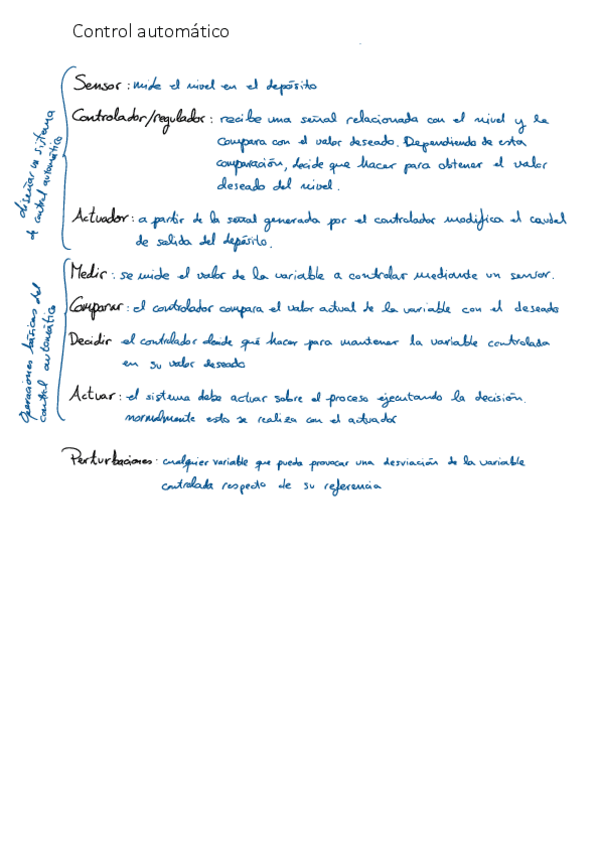 Control automático
diseñar un sistema
de control automático
Sensor: mide el nivel en el depósito
Controlador/regulador: recibe una señal relacionada con el nivel y la
compara con el valor deseado. Dependiendo de esta
comparación, decide que hacer para obtener el valor
deseado del nivel.
Actuador: a partir de la señal generada por el controlador modifica el caudal
de salida del depósito.
Operaciones básicas del
control automático
Medir: se mide el valor de la variable a controlar mediante un sensor.
Comparar: el controlador compara el valor actual de la variable con el deseado
Decidir el controlador decide qué hacer para mantener la variable controlada
en su valor deseado
Actuar: el sistema debe actuar sobre el proceso ejecutando la decisión.
normalmente esto se realiza con el actuador
Perturbaciones: cualquier variable que pueda provocar una desviación de la variable
controlada respecto de su referencia